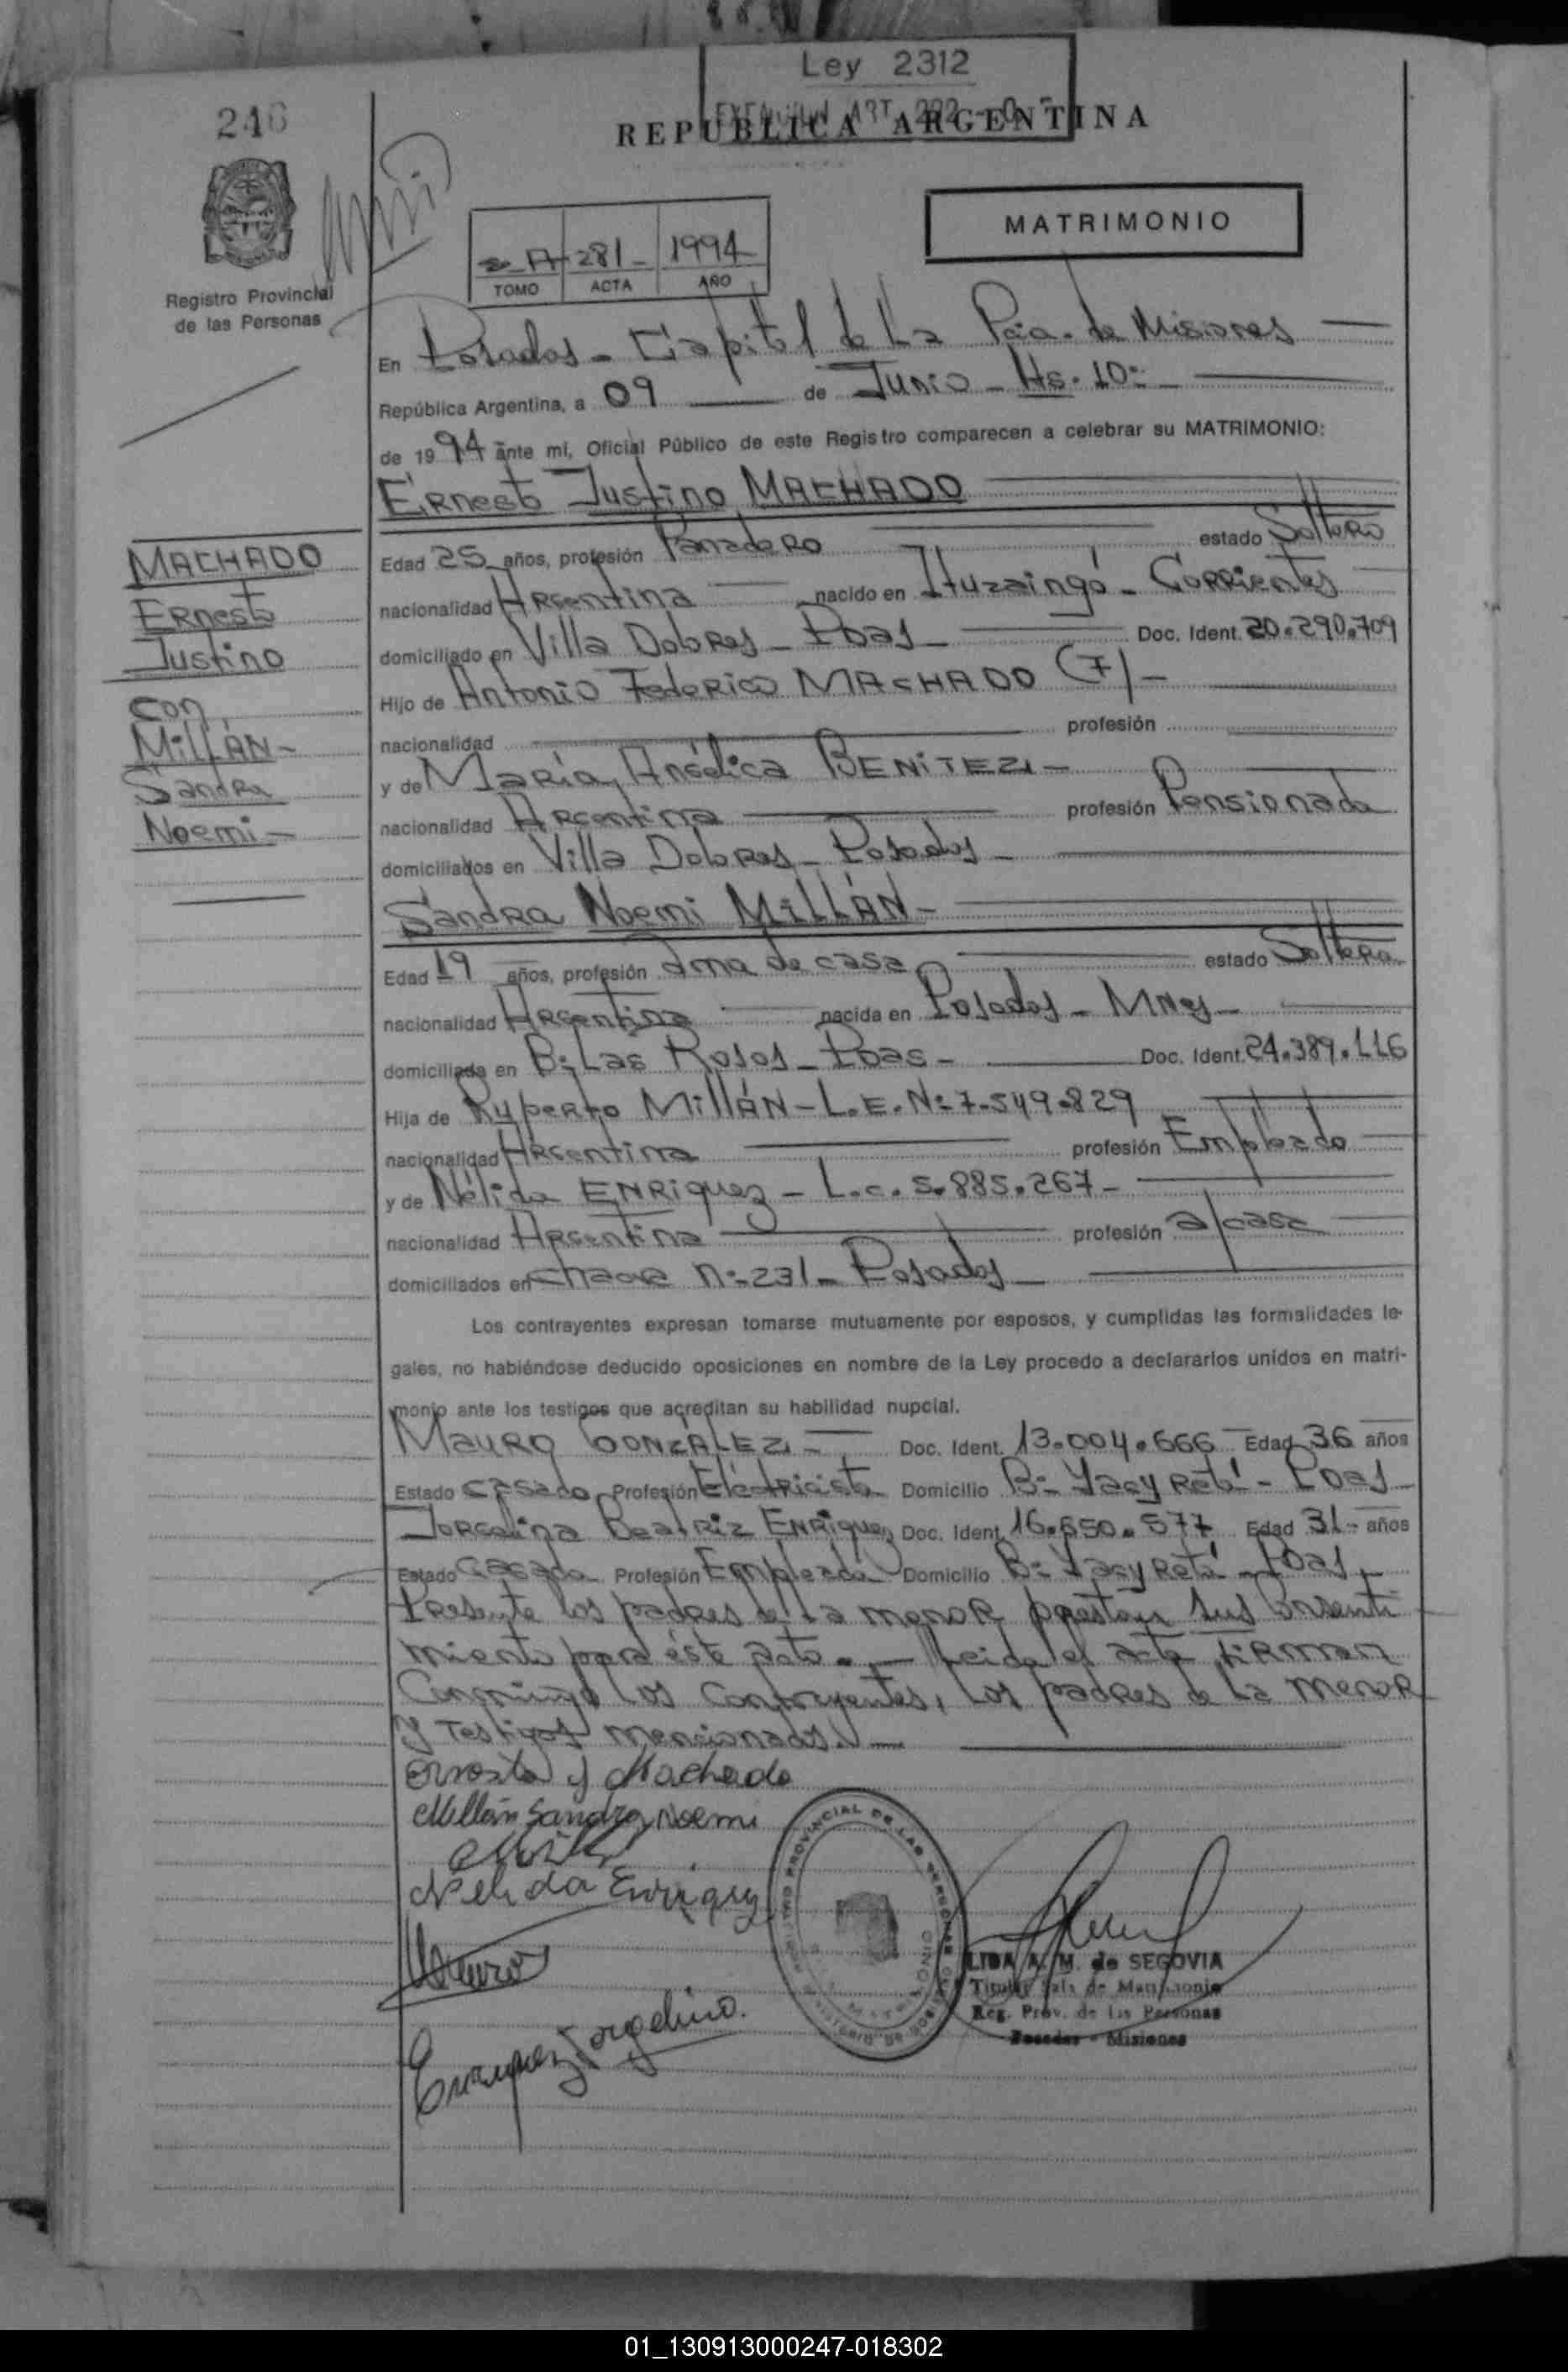 Ley 2312
246
REPUBLICA ARGENTINA
MATRIMONIO
A 281 1994
TOMO ACTA AÑO
Registro Provincial
de las Personas
En Posadas - Capital de La Pcia. de Misiones
República Argentina, a 09 de Junio - Hs. 10:
de 1994 ante mí, Oficial Público de este Registro comparecen a celebrar su MATRIMONIO:
Ernesto Justino MACHADO
MACHADO
Ernesto
Justino
con
MiLLÁN-
Sandra
Noemi-
Edad 25 años, profesión Panadero estado Soltero
nacionalidad Argentina nacido en Ituzaingó - Corrientes
domiciliado en Villa Dolores - Pdas - Doc. Ident. 20.290.709
Hijo de Antonio Federico MACHADO (F) -
nacionalidad profesión
y de María Angélica BENiTEZ -
nacionalidad Argentina profesión Pensionada
domiciliados en Villa Dolores - Posadas -
Sandra Noemi MiLLÁN -
Edad 19 años, profesión Ama de casa estado Soltera
nacionalidad Argentina nacida en Posadas - Mnes -
domiciliada en B: Las Rosas - Pdas - Doc. Ident. 24.389.116
Hija de Ruperto MiLLÁN - L.E. N: 7.549.829
nacionalidad Argentina profesión Empleado
y de Nélida ENRiquez - L.c. 5.885.267 -
nacionalidad Argentina profesión a/casa
domiciliados en N:-231- Posadas -
Los contrayentes expresan tomarse mutuamente por esposos, y cumplidas las formalidades le-
gales, no habiéndose deducido oposiciones en nombre de la Ley procedo a declararlos unidos en matri-
monio ante los testigos que acreditan su habilidad nupcial.
Mauro GONZALEZ - Doc. Ident. 13.004.666 Edad 36 años
Estado casado Profesión Electricista Domicilio B:- Yacyretá - Pdas -
Jorgelina Beatriz ENRiquez Doc. Ident. 16.650.577 Edad 31 - años
Estado Casada Profesión Empleada Domicilio B: Yacyretá - Pdas -
Presente los padres de La menor prestan sus Consenti
miento para éste acto. - Leida el acta FiRman
Conmigo los Contrayentes, Los padres de La menor
y Testigos mencionados. -
Ernesto J Machado
Millán Sandra Noemi
Nelida Enriquez
Mauro
Enriquez Jorgelina.
REGISTRO PROVINCIAL DE LAS PERSONAS
LIDA A. M. de SEGOVIA
Titular Sala de Matrimonio
Reg. Prov. de las Personas
Posadas - Misiones
01_130913000247-018302